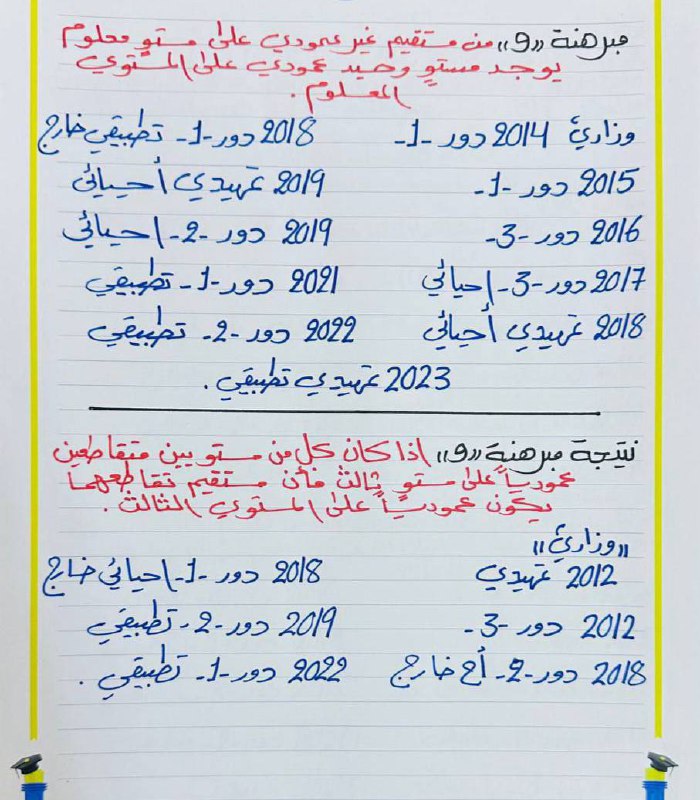 مبرهنة «9» من مستقيم غير عمودي على مستوٍ معلوم
يوجد مستوٍ وحيد عمودي على المستوي
المعلوم .
وزاريّ 2014 دور -1- 2018 دور -1- تطبيقي خارج
2015 دور -1- 2019 تمهيدي أحيائي
2016 دور -3- 2019 دور -2- احيائي
2017 دور -3- احيائي 2021 دور -1- تطبيقي
2018 تمهيدي أحيائي 2022 دور -2- تطبيقي
2023 تمهيدي تطبيقي .
نتيجة مبرهنة «9» اذا كان كل من مستويين متقاطعين
عمودياً على مستوٍ ثالث فأن مستقيم تقاطعهما
يكون عمودياً على المستوي الثالث .
«وزاريّ»
2012 تمهيدي 2018 دور -1- احيائي خارج
2012 دور -3- 2019 دور -2- تطبيقي
2018 دور -2- أح خارج 2022 دور -1- تطبيقي .